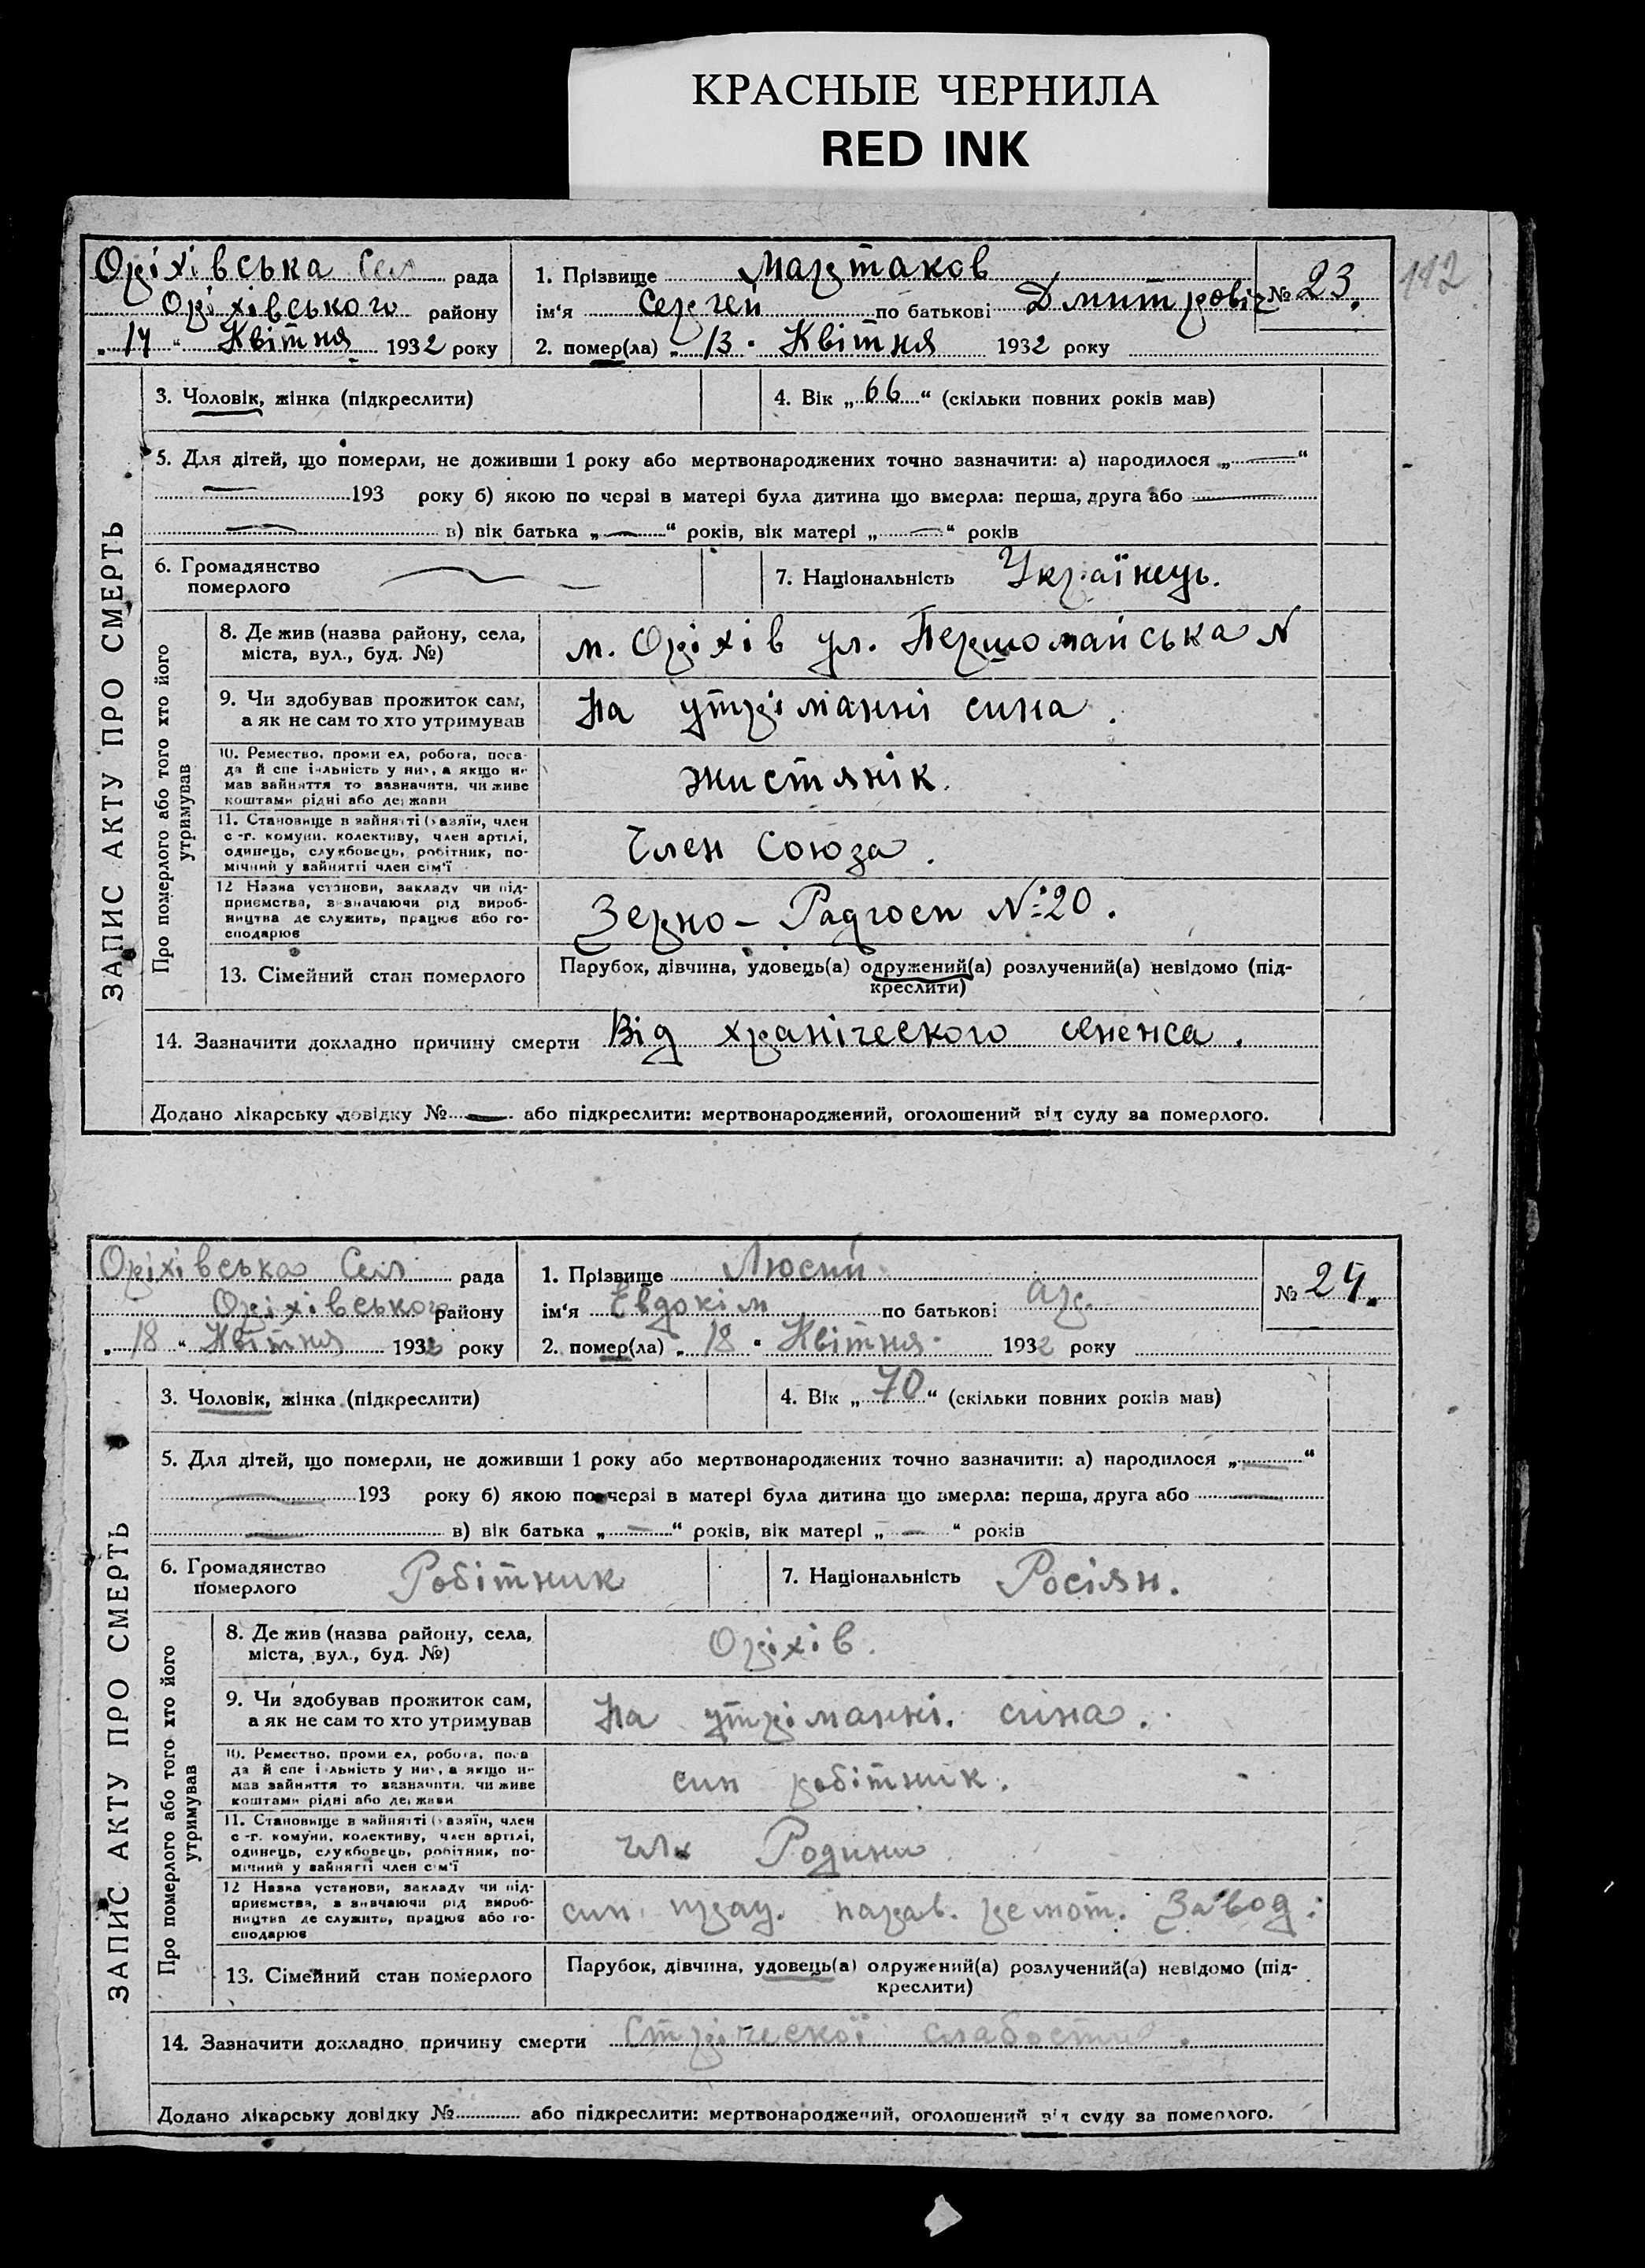 КРАСНЫЕ ЧЕРНИЛА
RED INK
142
Оріхівська Сел рада
Оріхівського району
„ 14 “ Квітня 1932 року
1. Прізвище Мартаков
ім‘я Сергей по батькові Дмитровіч
2. помер(ла) „ 13 “ Квітня 1932 року
№ 23.
ЗАПИС АКТУ ПРО СМЕРТЬ
3. Чоловік, жінка (підкреслити)
4. Вік „ 66 “ (скільки повних років мав)
5. Для дітей, що померли, не доживши 1 року або мертвонароджених точно зазначити: а) народилося „ — “
— 193 року б) якою по черзі в матері була дитина що вмерла: перша, друга або —
— в) вік батька „ — “ років, вік матері „ — “ років
6. Громадянство
померлого —
7. Національність Українець.
Про померлого або того хто його
утримував
8. Де жив (назва району, села,
міста, вул., буд. №)
м. Оріхів ул. Першомайська N
9. Чи здобував прожиток сам,
а як не сам то хто утримував
На утріманні сина.
10. Ремество, проми ел, робота, поса-
да й спе і льність у ни , а якщо не
мав зайняття то зазначити, чи живе
коштами рідні або держави
жистянік.
11. Становище в зайнятті (хазяїн, член
с.-г. комуни, колективу, член артілі,
одинець, службовець, робітник, по-
мічний у зайнятті член сім‘ї
Член Союза.
12 Назва установи, закладу чи під-
приємства, зазначаючи рід вироб-
ництва де служить, працює або го-
сподарює
Зерно – Радгосп №20.
13. Сімейний стан померлого
Парубок, дівчина, удовець(а) одружений(а) розлучений(а) невідомо (під-
креслити)
14. Зазначити докладно причину смерти Від храніческого
Додано лікарську довідку № — або підкреслити: мертвонароджений, оголошений від суду за померлого.
Оріхівська Сел рада
Оріхівського району
„ 18 “ Квітня 1932 року
1. Прізвище Люсий
ім‘я Евдокім по батькові Ар.
2. помер(ла) „ 18 “ Квітня 1932 року
№ 24.
ЗАПИС АКТУ ПРО СМЕРТЬ
3. Чоловік, жінка (підкреслити)
4. Вік „ 70 “ (скільки повних років мав)
5. Для дітей, що померли, не доживши 1 року або мертвонароджених точно зазначити: а) народилося „ — “
— 193 року б) якою по черзі в матері була дитина що вмерла: перша, друга або —
— в) вік батька „ — “ років, вік матері „ — “ років
6. Громадянство
померлого Робітник
7. Національність Росіян.
Про померлого або того хто його
утримував
8. Де жив (назва району, села,
міста, вул., буд. №)
Оріхів.
9. Чи здобував прожиток сам,
а як не сам то хто утримував
На утріманні. сина.
10. Ремество, проми ел, робота, поса
да й спе і льність у ни , а якщо не
мав зайняття то зазначити, чи живе
коштами рідні або держави
син робітник.
11. Становище в зайнятті (хазяїн, член
с.-г. комуни, колективу, член артілі,
одинець, службовець, робітник, по-
мічний у зайнятті член сім‘ї
чл. Родини
12 Назва установи, закладу чи під-
приємства, зазначаючи рід вироб-
ництва де служить, працює або го-
сподарює
син прац. парав. ремот. Завод.
13. Сімейний стан померлого
Парубок, дівчина, удовець(а) одружений(а) розлучений(а) невідомо (під-
креслити)
14. Зазначити докладно причину смерти Стріческої слабости.
Додано лікарську довідку № або підкреслити: мертвонароджений, оголошений від суду за померлого.